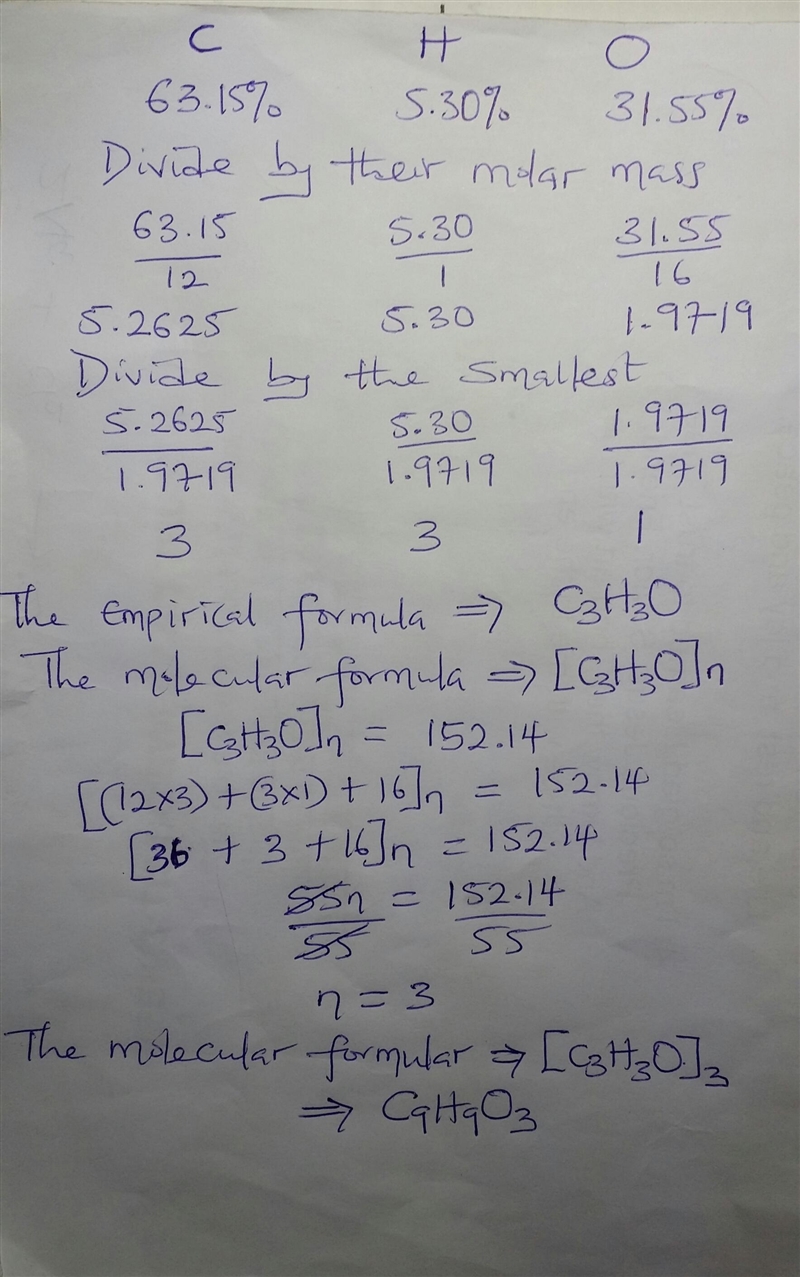 C H O
63.15% 5.30% 31.55%
Divide by their molar mass
63.15/12 5.30/1 31.55/16
5.2625 5.30 1.9719
Divide by the smallest
5.2625/1.9719 5.30/1.9719 1.9719/1.9719
3 3 1
The Empirical formula ⇒ C₃H₃O
The molecular formula ⇒ [C₃H₃O]n
[C₃H₃O]n = 152.14
[(12×3)+(3×1)+16]n = 152.14
[36 + 3 + 16]n = 152.14
55n/55 = 152.14/55
n = 3
The molecular formular ⇒ [C₃H₃O]₃
⇒ C₉H₉O₃